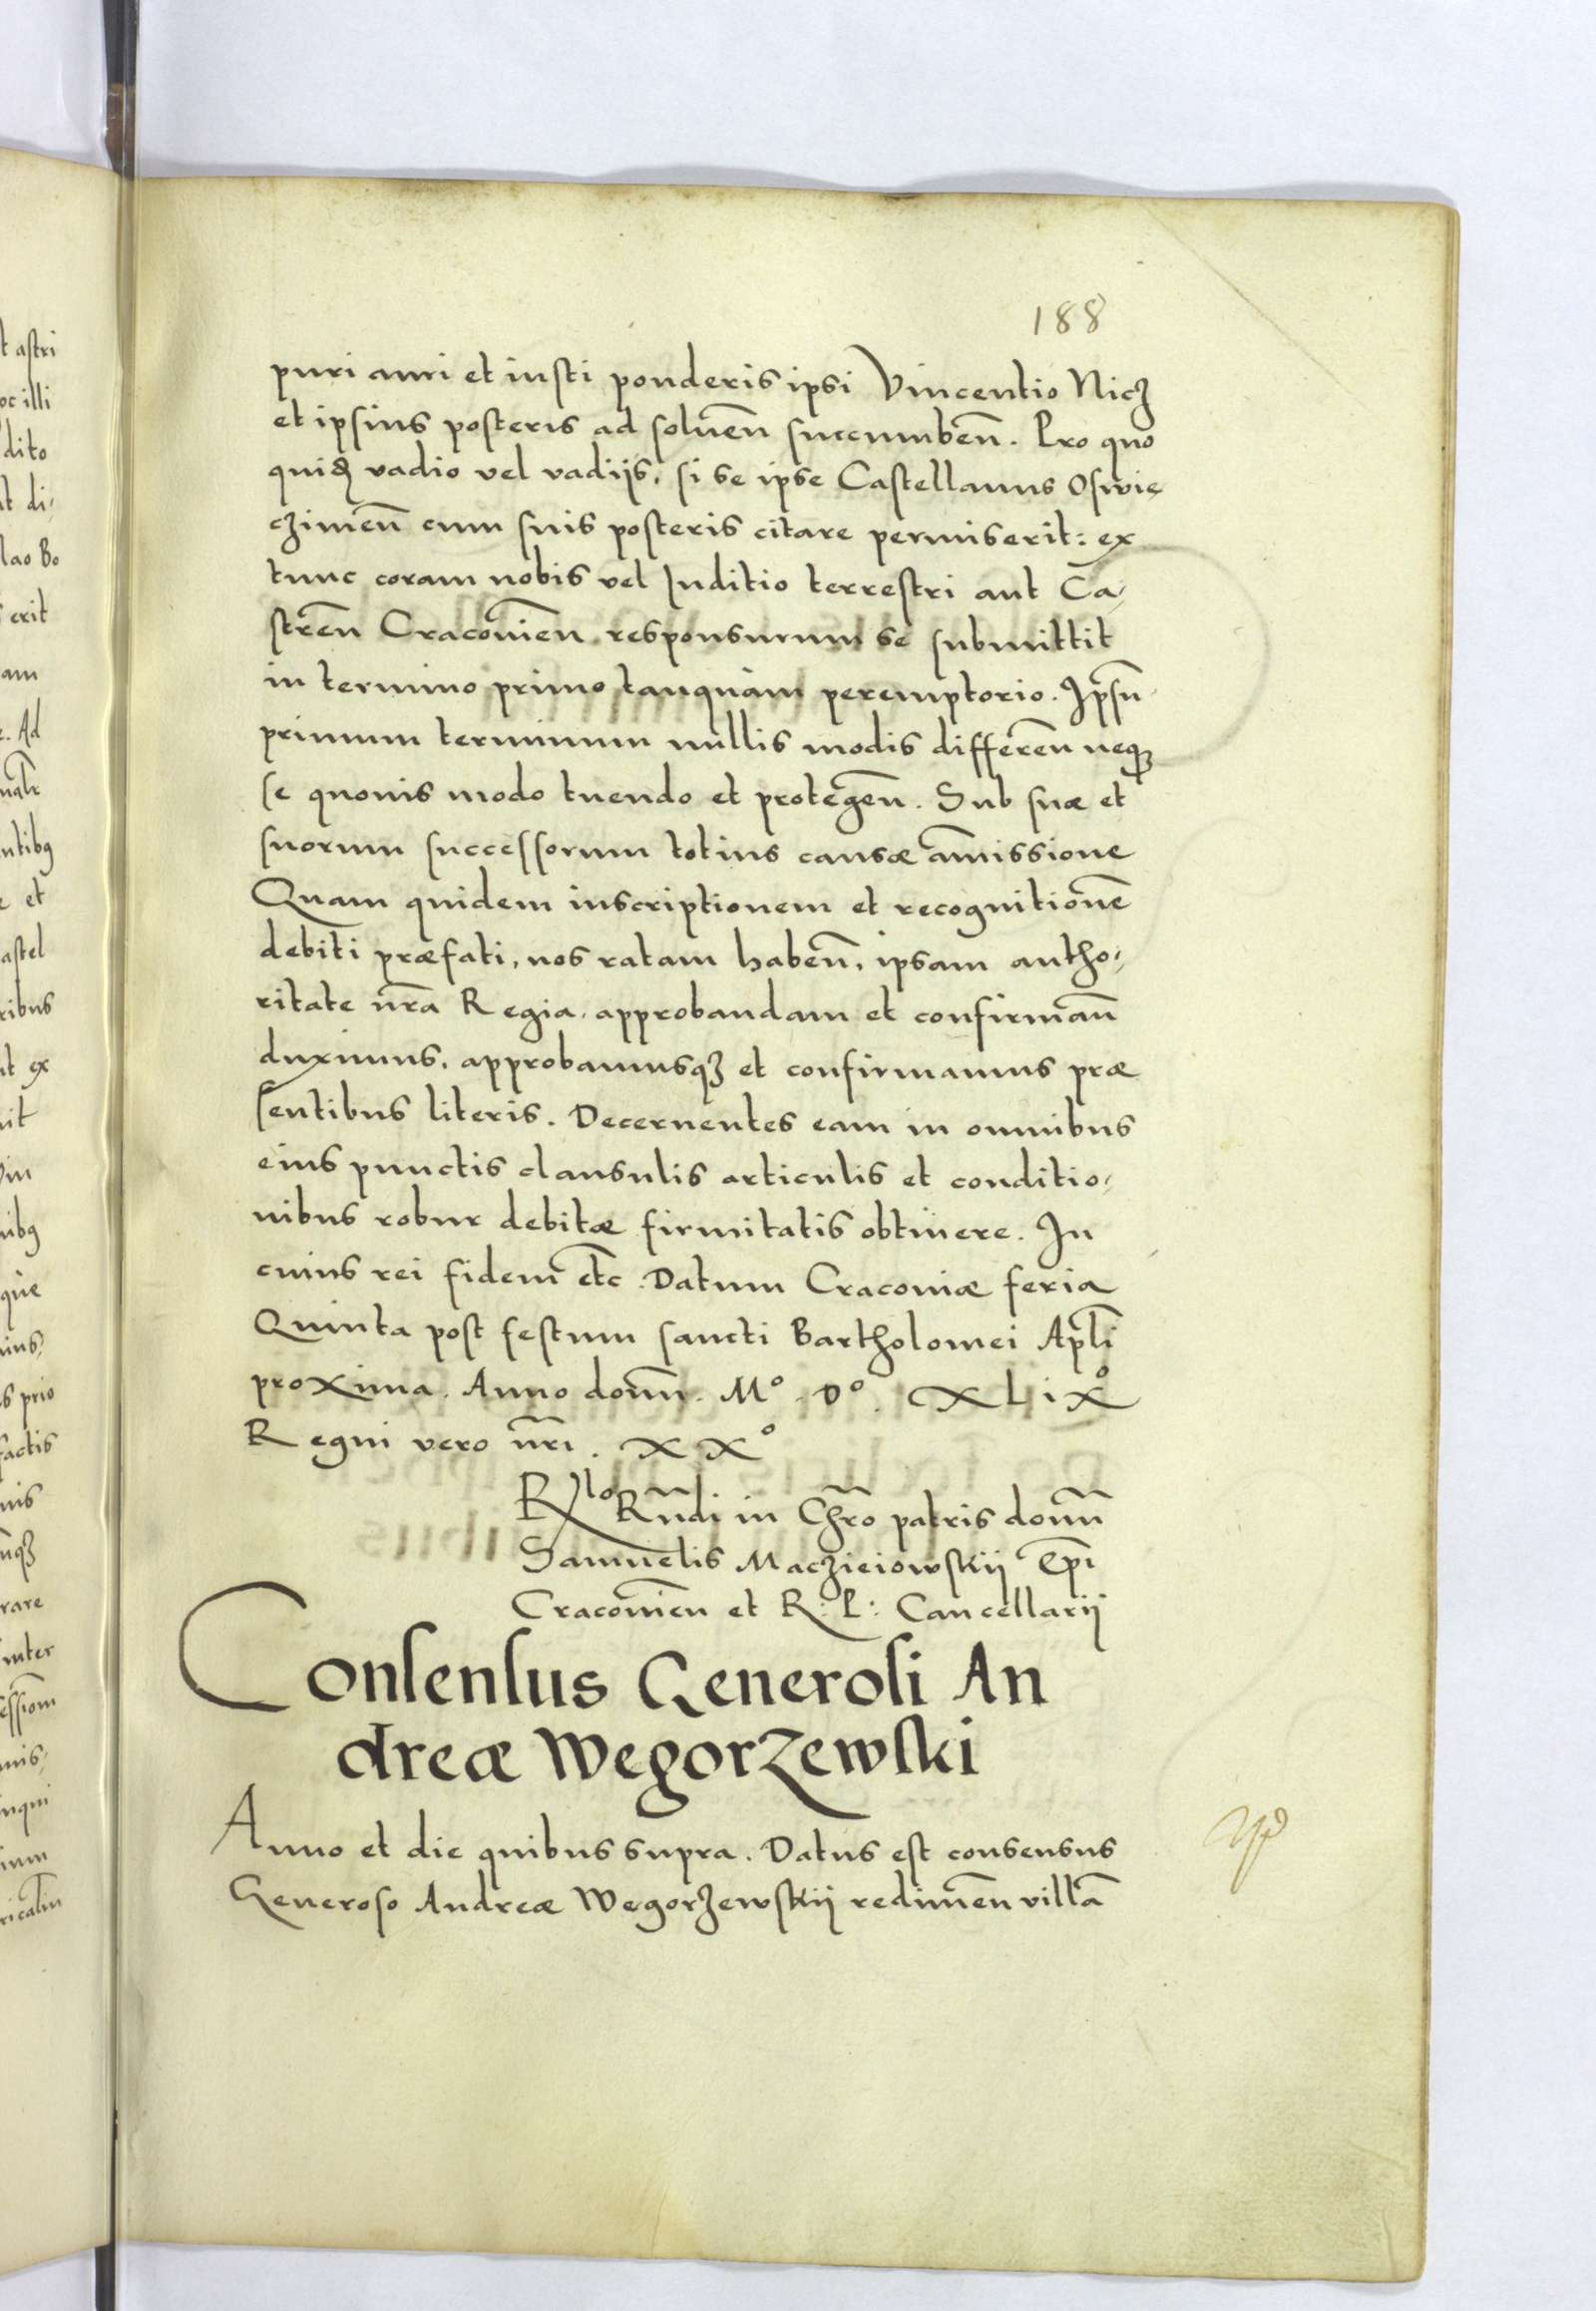 188
puri auri et iusti ponderis ipsi Vincentio Nicz
et ipsius posteris ad soluen̄ succumben̄. Pro quo
quid vadio vel vadijs, si se ipse Castellanus Oswię
czimen̄ cum suis posteris citare permiserit: ex
tunc coram nobis vel Iuditio terrestri aut Ca-
stren̄ Cracouien̄ responsurum se submittit
in termino primo tanquam peremptorio. Ipsū
primum terminum nullis modis differen̄ neqз
se quouis modo tuendo et protegen̄. Sub suæ et
suorum successorum totius causæ amissione
Quam quidem inscriptionem et recognitionē
debiti præfati, nos ratam haben̄, ipsam autho-
ritate nr̄a Regia, approbandam et confirman̄
duximus, approbamusqз et confirmamus præ
sentibus literis. Decernentes eam in omnibus
eius punctis clausulis articulis et conditio-
nibus robur debitæ firmitatis obtinere. In
cuius rei fidem etc. Datum Cracouiæ feria
Quinta post festum sancti Bartholomei Apl̄i
proxima. Anno domn̄. M° D°. XLiX°
Regni vero nr̄i. XX°
Rlo Rn̄di in Chr̄o patris domn̄
Samuelis Maczieiowskij Ep̄i
Cracouien̄ et R: P: Cancellarij
Consensus Generosi An
dreæ Wegorzewski
Anno et die quibus supra. Datus est consensus
Generoso Andreæ Wegorzewskij redimen̄ villā